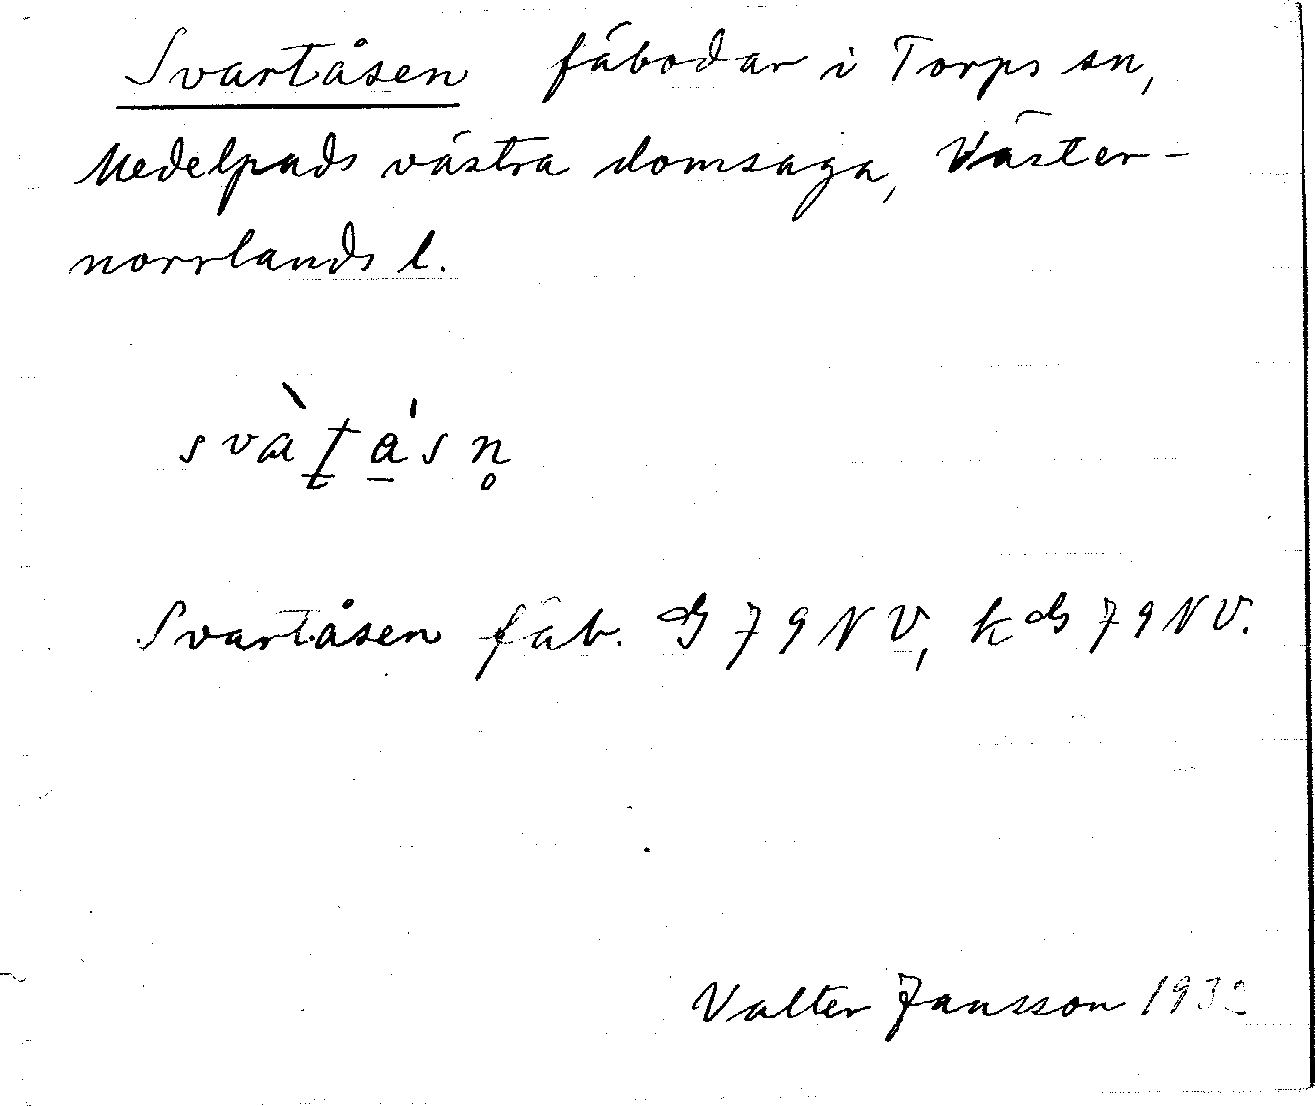 Svartåsen fäbodar i Torps sn,
Medelpads västra domsaga, Väster-
norrlands l.
Svartåsen fäb. GS 79 NV, kGS 79 NV.
Valter Jansson 1932